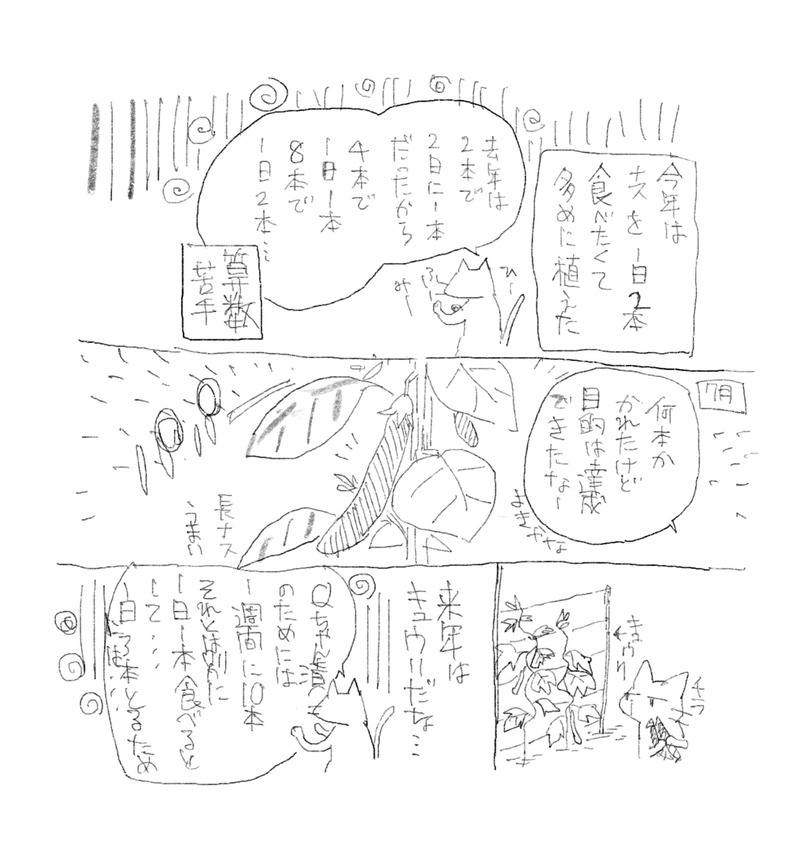 今年は
ナスを1日2本
食べたくて
多めに植えた
去年は
2本で
2日に1本
だったから
4本で
1日1本
8本で
1日2本…
算数
苦手
ひー
ふー
みー
7月
何本か
かれたけど
目的は達成
できたなー
長ナス
うまい
チラ
キュウリ
来年は
キュウリだな…
Qちゃん漬け
のためには
1週間に10本
それとは別に
1日1本食べると
して…
1日3本とるため
は…